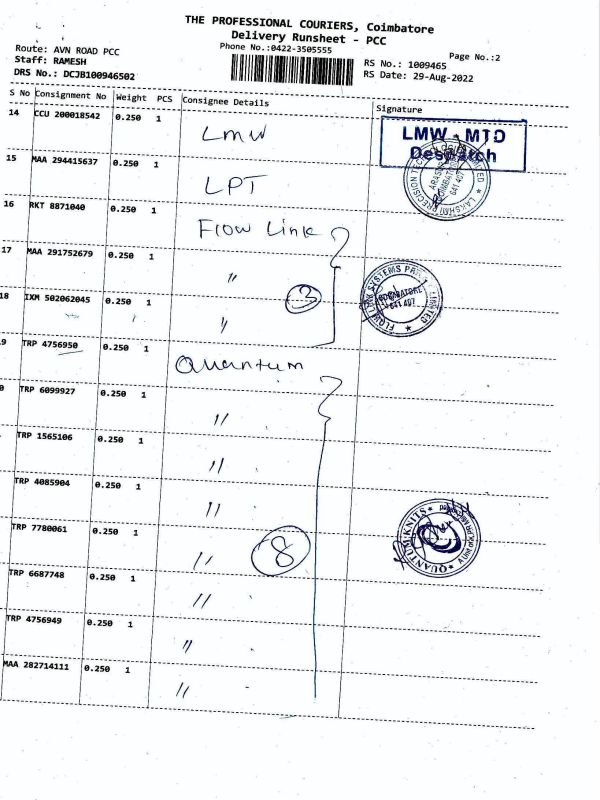 THE PROFESSIONAL COURIERS, Coimbatore
Delivery Runsheet - PCC
Phone No.:0422-3505555
Page No.:2
Route: AVN ROAD PCC
Staff: RAMESH
DRS No.: DCJB100946502
RS No.: 1009465
RS Date: 29-Aug-2022
S No Consignment No Weight PCS Consignee Details Signature
14 CCU 200018542 0.250 1 LMW
LMW - MTD
Despatch
15 MAA 294415637 0.250 1 LPT
COIMBATORE
641 407
16 RKT 8871040 0.250 1 Flow Link
17 MAA 291752679 0.250 1 "
3
FLOW LINK SYSTEMS PRIVATE LIMITED
COIMBATORE
641 407
18 IXM 502062045 0.250 1 "
9 TRP 4756950 0.250 1 Quantum
0 TRP 6099927 0.250 1 "
TRP 1565106 0.250 1 "
TRP 4085904 0.250 1 "
QUANTUM KNITS
TRP 7780061 0.250 1 "
8
TRP 6687748 0.250 1 "
TRP 4756949 0.250 1 "
MAA 282714111 0.250 1 "